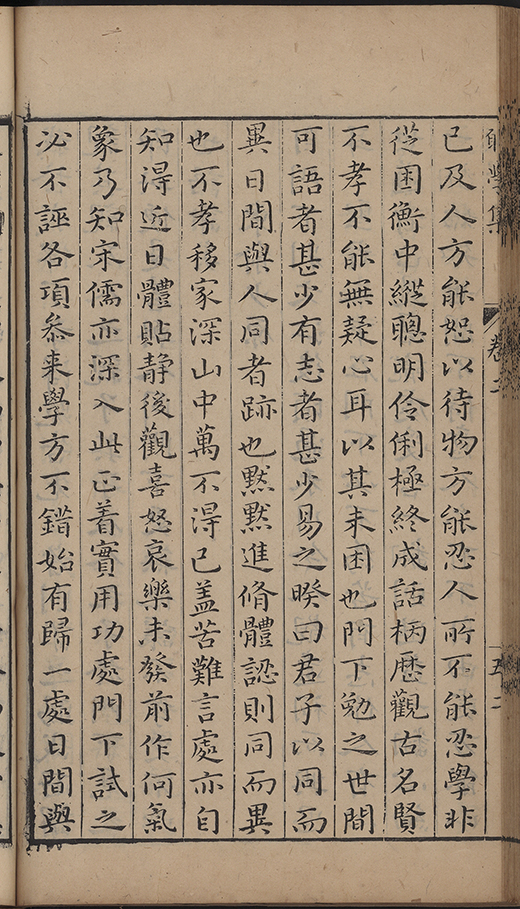 學集 卷二 五二
已及人方能恕以待物方能忍人所不能忍學非
從困衡中縱聰明伶俐極終成話柄歷觀古名賢
不孝不能無疑心耳以其未困也門下勉之世間
可語者甚少有志者甚少易之暌曰君子以同而
異日間與人同者跡也默默進脩體認則同而異
也不孝移家深山中萬不得已盖苦難言處亦自
知得近日體貼静後觀喜怒哀樂未發前作何氣
象乃知宋儒亦深入此正着實用功處門下試之
必不誣各項叅来學方不錯始有歸一處日間與